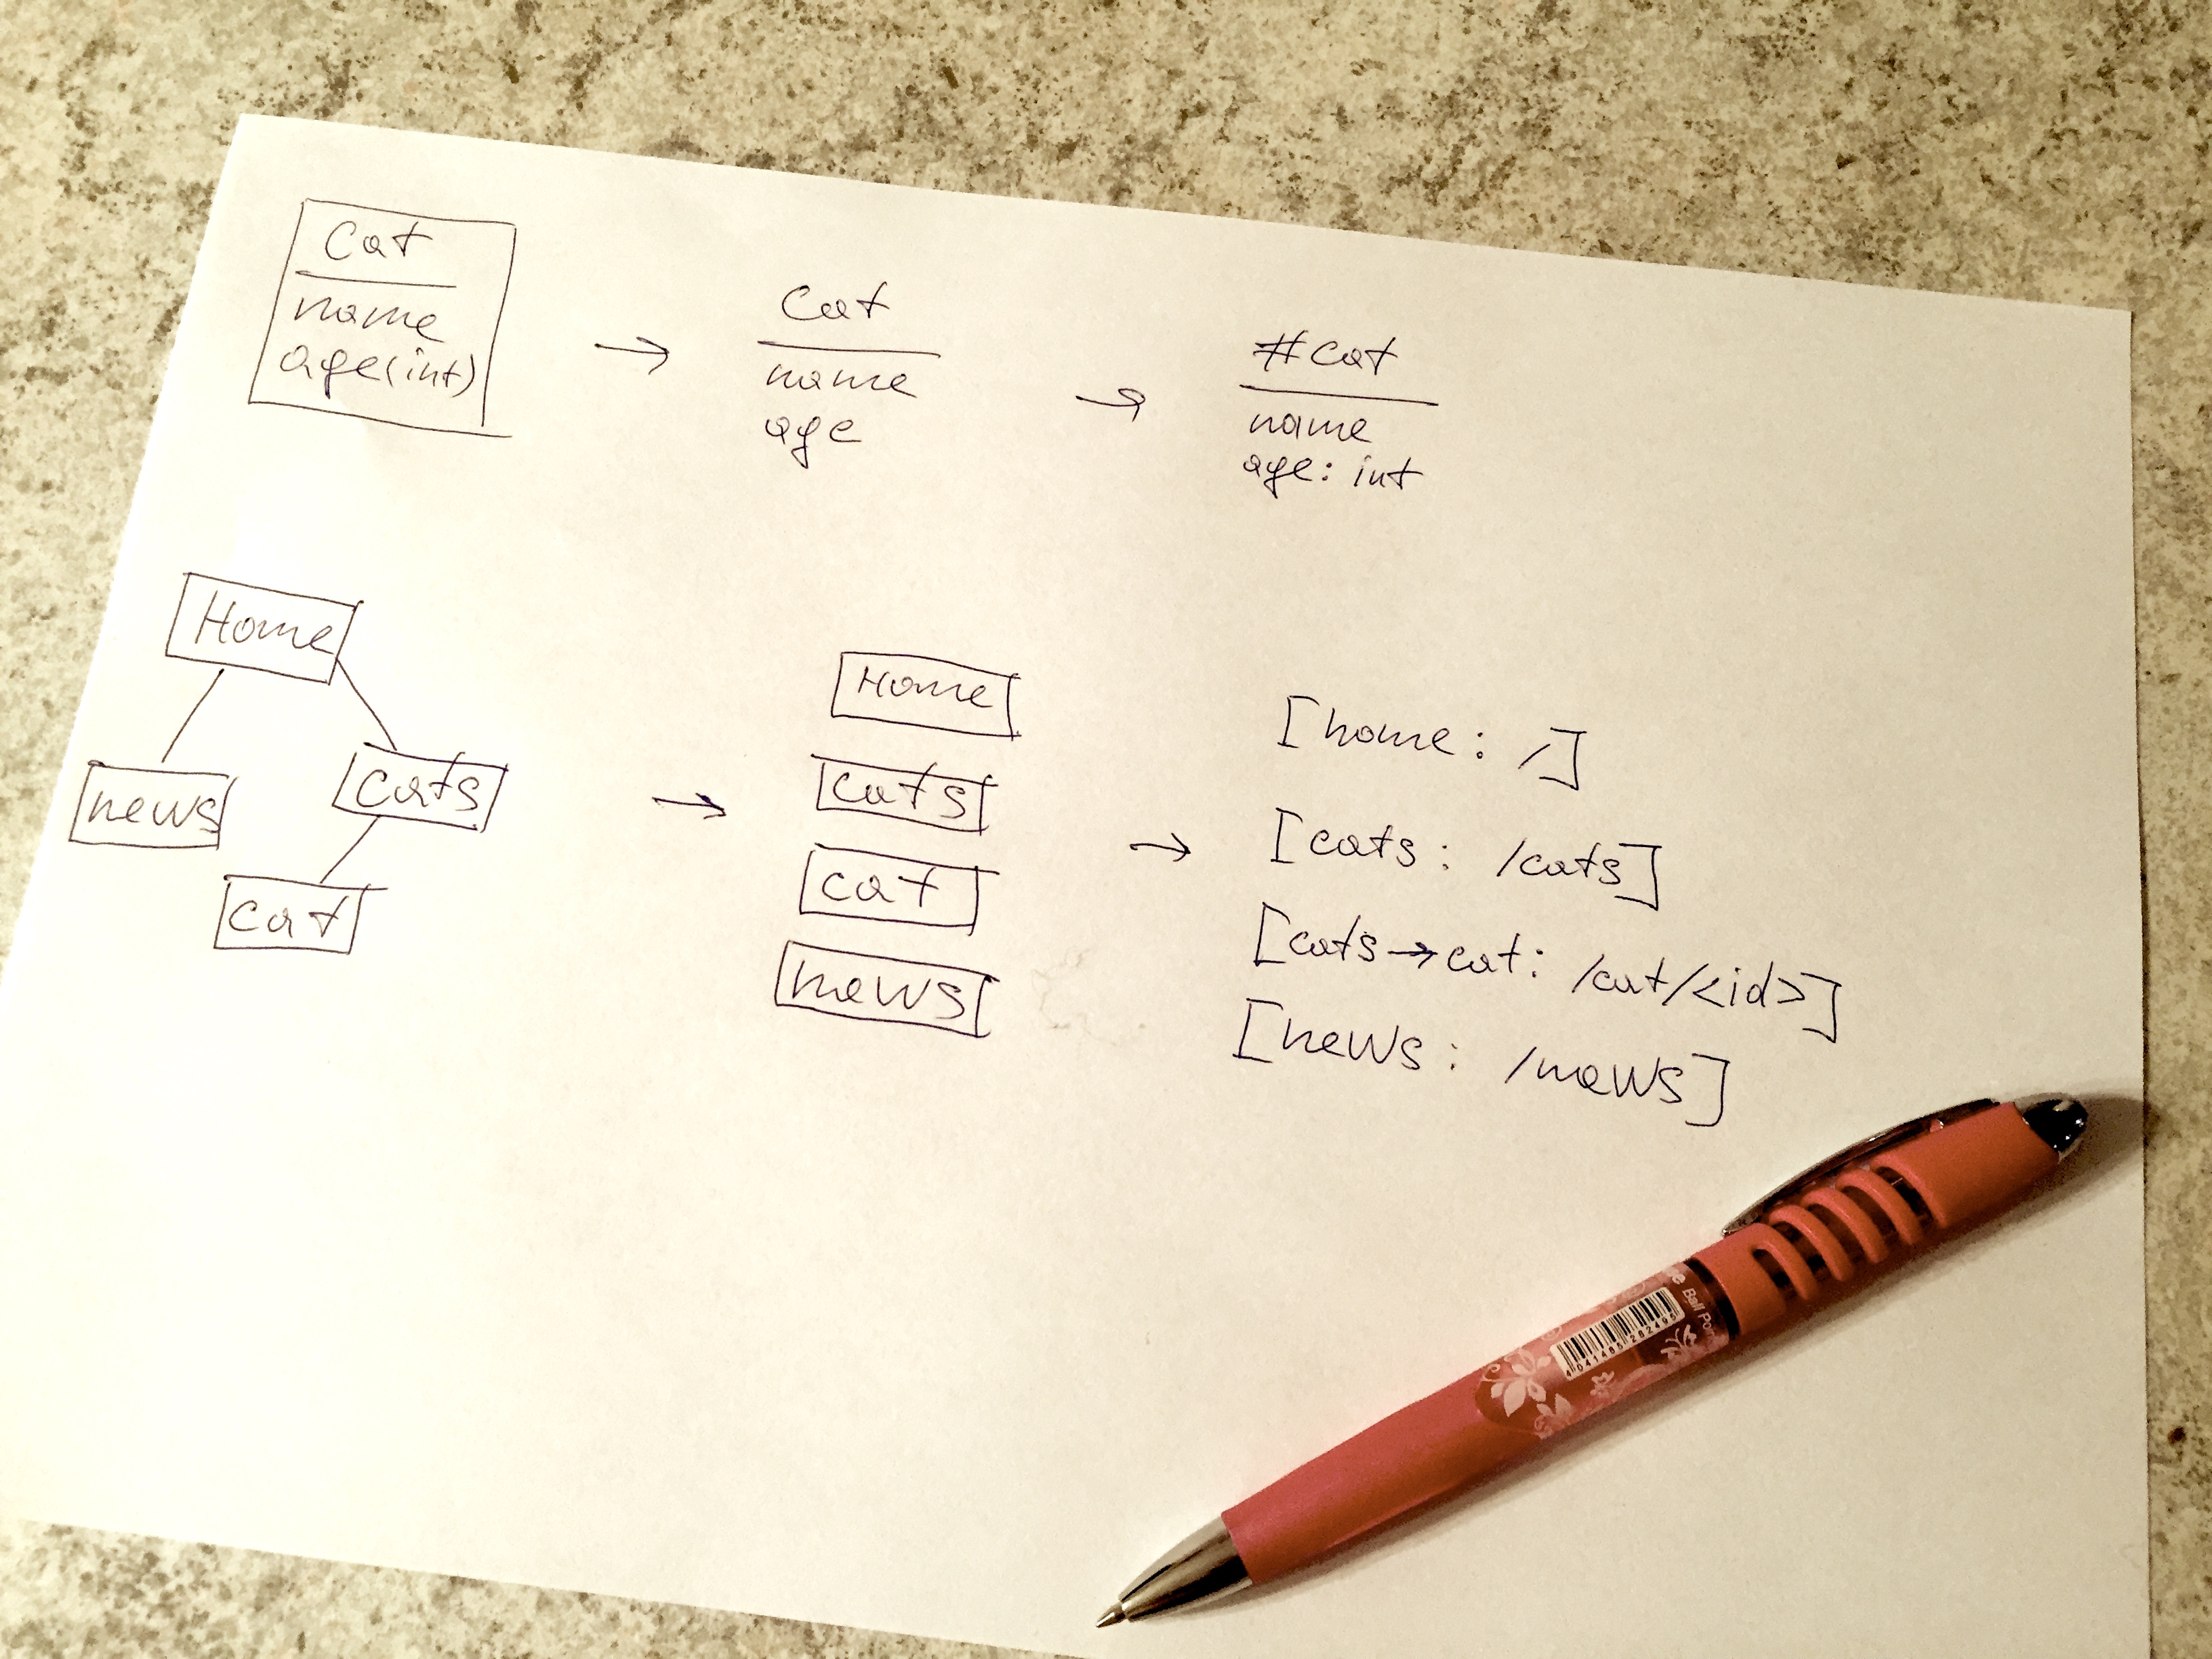 Cat
name
age(int)
→
Cat
name
age
→
#cat
name
age: int
Home
news
cats
cat
→
Home
cats
cat
news
→
[home: /]
[cats: /cats]
[cats→cat: /cat/<id>]
[news: /news]
Ball Poin
4041485282495